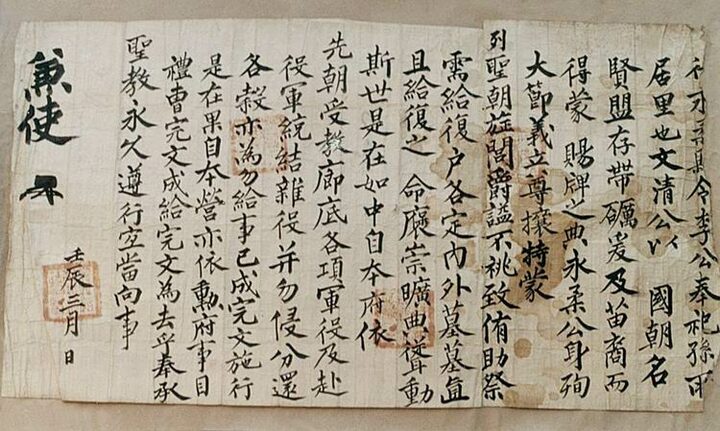 令李公奉祀孫所
居里也文清公以 國朝名
賢盟存帶礪爰及苗裔而
得蒙 賜牌之典永柔公身殉
大節義立尊攘特蒙
列聖朝旌閭爵諡不祧致侑助祭
需給復戶各定內外墓墓直
且給復之 命隱崇曠典聳動
斯世是在如中自本府依
先朝受教廊底各項軍役及赴
役軍統結雜役并勿侵分還
各穀亦為勿給事已成完文施行
是在果自本營亦依勳府事目
禮曹完文成給完文為去乎奉承
聖教永久遵行宜當向事
壬辰三月 日
兼使